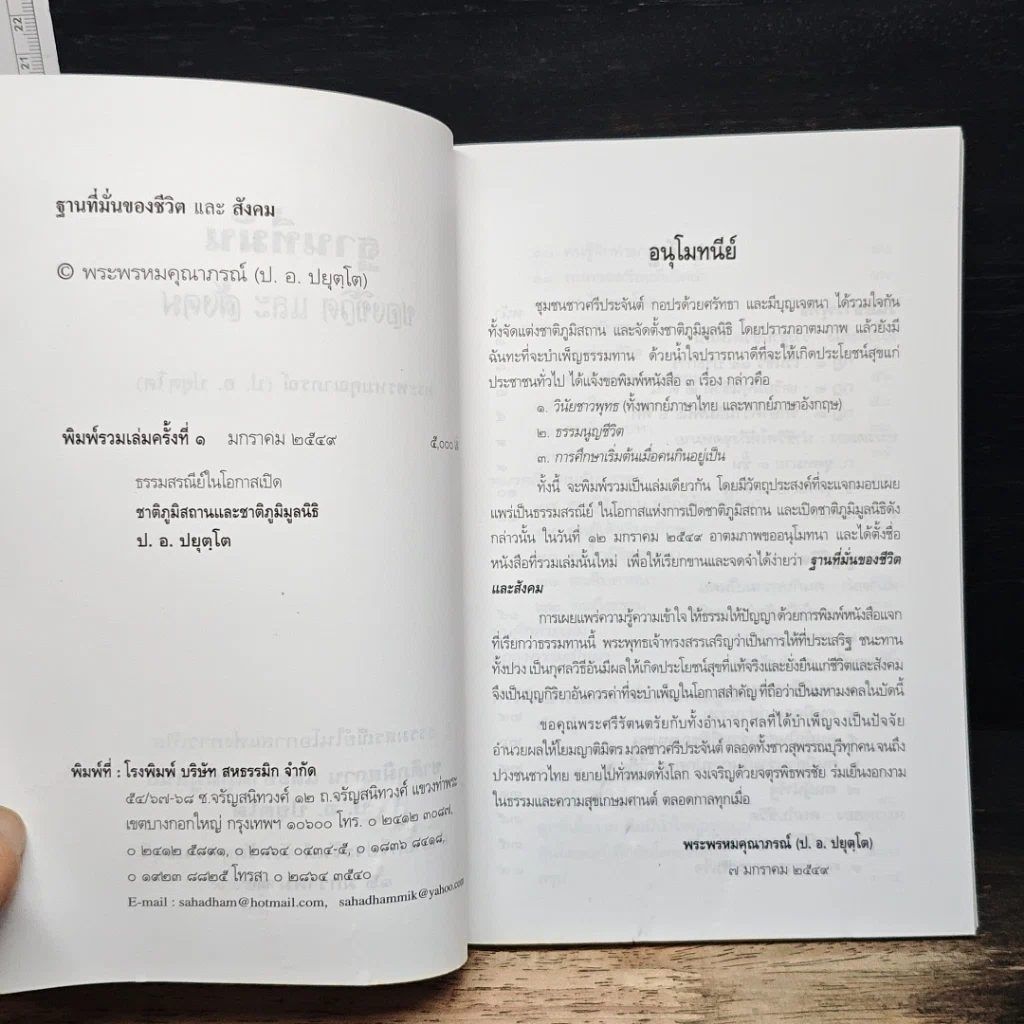 ฐานที่มั่นของชีวิต และ สังคม
© พระพรหมคุณาภรณ์ (ป. อ. ปยุตฺโต)
พิมพ์รวมเล่มครั้งที่ ๑ มกราคม ๒๕๔๙ ๕,๐๐๐
ธรรมสรณีย์ในโอกาสเปิด
ชาติภูมิสถานและชาติภูมิมูลนิธิ
ป. อ. ปยุตฺโต
พิมพ์ที่ : โรงพิมพ์ บริษัท สหธรรมิก จำกัด
๕๔/๖๗-๖๘ ซ.จรัญสนิทวงศ์ ๑๒ ถ.จรัญสนิทวงศ์ แขวงท่าพระ
เขตบางกอกใหญ่ กรุงเทพฯ ๑๐๖๐๐ โทร. ๐ ๒๔๑๒ ๓๐๘๗,
๐ ๒๔๑๒ ๕๘๙๑, ๐ ๒๘๖๔ ๐๔๓๔-๕, ๐ ๑๘๓๖ ๘๔๑๘,
๐ ๑๙๒๓ ๘๘๒๕ โทรสา ๐ ๒๘๖๔ ๓๕๔๐
E-mail : sahadham@hotmail.com, sahadhammik@yahoo.com
อนุโมทนีย์
ชุมชนชาวศรีประจันต์ กอปรด้วยศรัทธา และมีบุญเจตนา ได้รวมใจกัน
ทั้งจัดแต่งชาติภูมิสถาน และจัดตั้งชาติภูมิมูลนิธิ โดยปรารภอาตมภาพ แล้วยังมี
ฉันทะที่จะบำเพ็ญธรรมทาน ด้วยน้ำใจปรารถนาดีที่จะให้เกิดประโยชน์สุขแก่
ประชาชนทั่วไป ได้แจ้งขอพิมพ์หนังสือ ๓ เรื่อง กล่าวคือ
๑. วินัยชาวพุทธ (ทั้งพากย์ภาษาไทย และพากย์ภาษาอังกฤษ)
๒. ธรรมนูญชีวิต
๓. การศึกษาเริ่มต้นเมื่อคนกินอยู่เป็น
ทั้งนี้ จะพิมพ์รวมเป็นเล่มเดียวกัน โดยมีวัตถุประสงค์ที่จะแจกมอบเผย
แพร่เป็นธรรมสรณีย์ ในโอกาสแห่งการเปิดชาติภูมิสถาน และเปิดชาติภูมิมูลนิธิดัง
กล่าวนั้น ในวันที่ ๑๒ มกราคม ๒๕๔๙ อาตมภาพขออนุโมทนา และได้ตั้งชื่อ
หนังสือที่รวมเล่มนั้นใหม่ เพื่อให้เรียกขานและจดจำได้ง่ายว่า ฐานที่มั่นของชีวิต
และสังคม
การเผยแพร่ความรู้ความเข้าใจ ให้ธรรมให้ปัญญา ด้วยการพิมพ์หนังสือแจก
ที่เรียกว่าธรรมทานนี้ พระพุทธเจ้าทรงสรรเสริญว่าเป็นการให้ที่ประเสริฐ ชนะทาน
ทั้งปวง เป็นกุศลวิธีอันมีผลให้เกิดประโยชน์สุขที่แท้จริงและยั่งยืนแก่ชีวิตและสังคม
จึงเป็นบุญกิริยาอันควรค่าที่จะบำเพ็ญในโอกาสสำคัญ ที่ถือว่าเป็นมหามงคลในบัดนี้
ขอคุณพระศรีรัตนตรัยกับทั้งอำนาจกุศลที่ได้บำเพ็ญจงเป็นปัจจัย
อำนวยผลให้โยมญาติมิตร มวลชาวศรีประจันต์ ตลอดทั้งชาวสุพรรณบุรีทุกคน จนถึง
ปวงชนชาวไทย ขยายไปทั่วหมดทั้งโลก จงเจริญด้วยจตุรพิธพรชัย ร่มเย็นงอกงาม
ในธรรมและความสุขเกษมศานต์ ตลอดกาลทุกเมื่อ
พระพรหมคุณาภรณ์ (ป. อ. ปยุตฺโต)
๗ มกราคม ๒๕๔๙
22
21